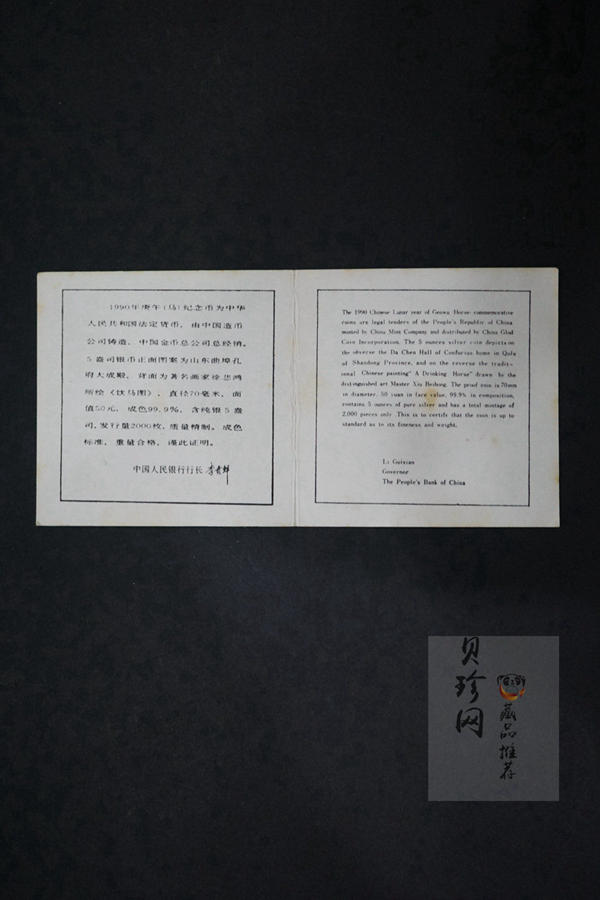 1990年庚午(马)纪念币为中华
人民共和国法定货币，由中国造币
公司铸造，中国金币总公司总经销。
5盎司银币正面图案为山东曲埠孔
府大成殿，背面为著名画家徐悲鸿
所绘《饮马图》，直径70毫米，面
值50元，成色99.9%，含纯银5盎
司，发行量2000枚，质量精制。成色
标准，重量合格，谨此证明。
中国人民银行行长 李贵鲜
The 1990 Chinese Lunar year of Geowu Horse commemorative
coins are legal tenders of the People's Republic of China
minted by China Mint Company and distributed by China Glod
Coin Incorporation. The 5 ounces silver coin depicts on
the obverse the Da Chen Hall of Confucius home in Qufu
of Shandong Province, and on the reverse the tradit-
ional Chinese painting "A Drinking Horse" drawn by the
distinguished art Master Xiu Beihong. The proof coin is 70mm
in diameter, 50 yuan in face value, 99.9% in composition,
contains 5 ounces of pure silver and has a total mintage of
2,000 pieces only. This is to certify that the coin is up to
standard as to its fineness and weight.
Li Guixian
Governor
The People's Bank of China
贝珍网
藏品推荐